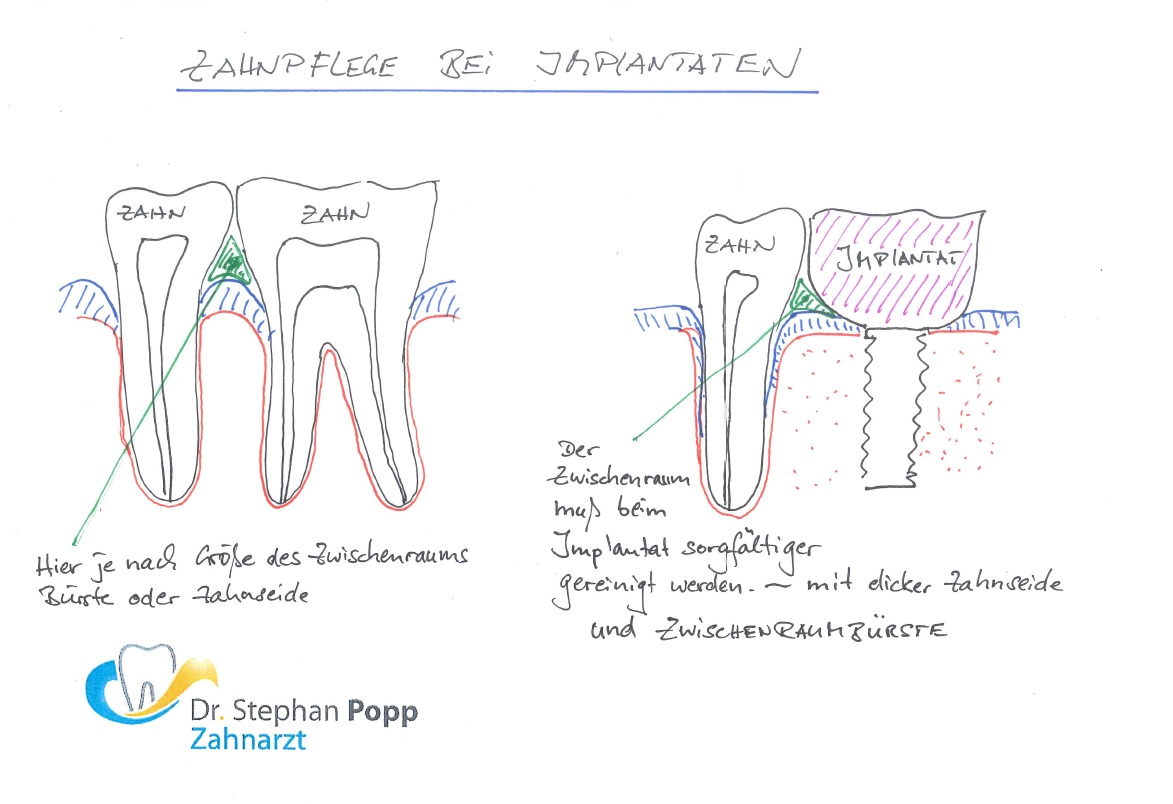 ZAHNPFLEGE BEI IMPLANTATEN
ZAHN
ZAHN
Hier je nach Größe des Zwischenraums
Bürste oder Zahnseide
ZAHN
IMPLANTAT
Der
Zwischenraum
muß beim
Implantat sorgfältiger
gereinigt werden. – mit dicker Zahnseide
und ZWISCHENRAUMBÜRSTE
Dr. Stephan Popp
Zahnarzt